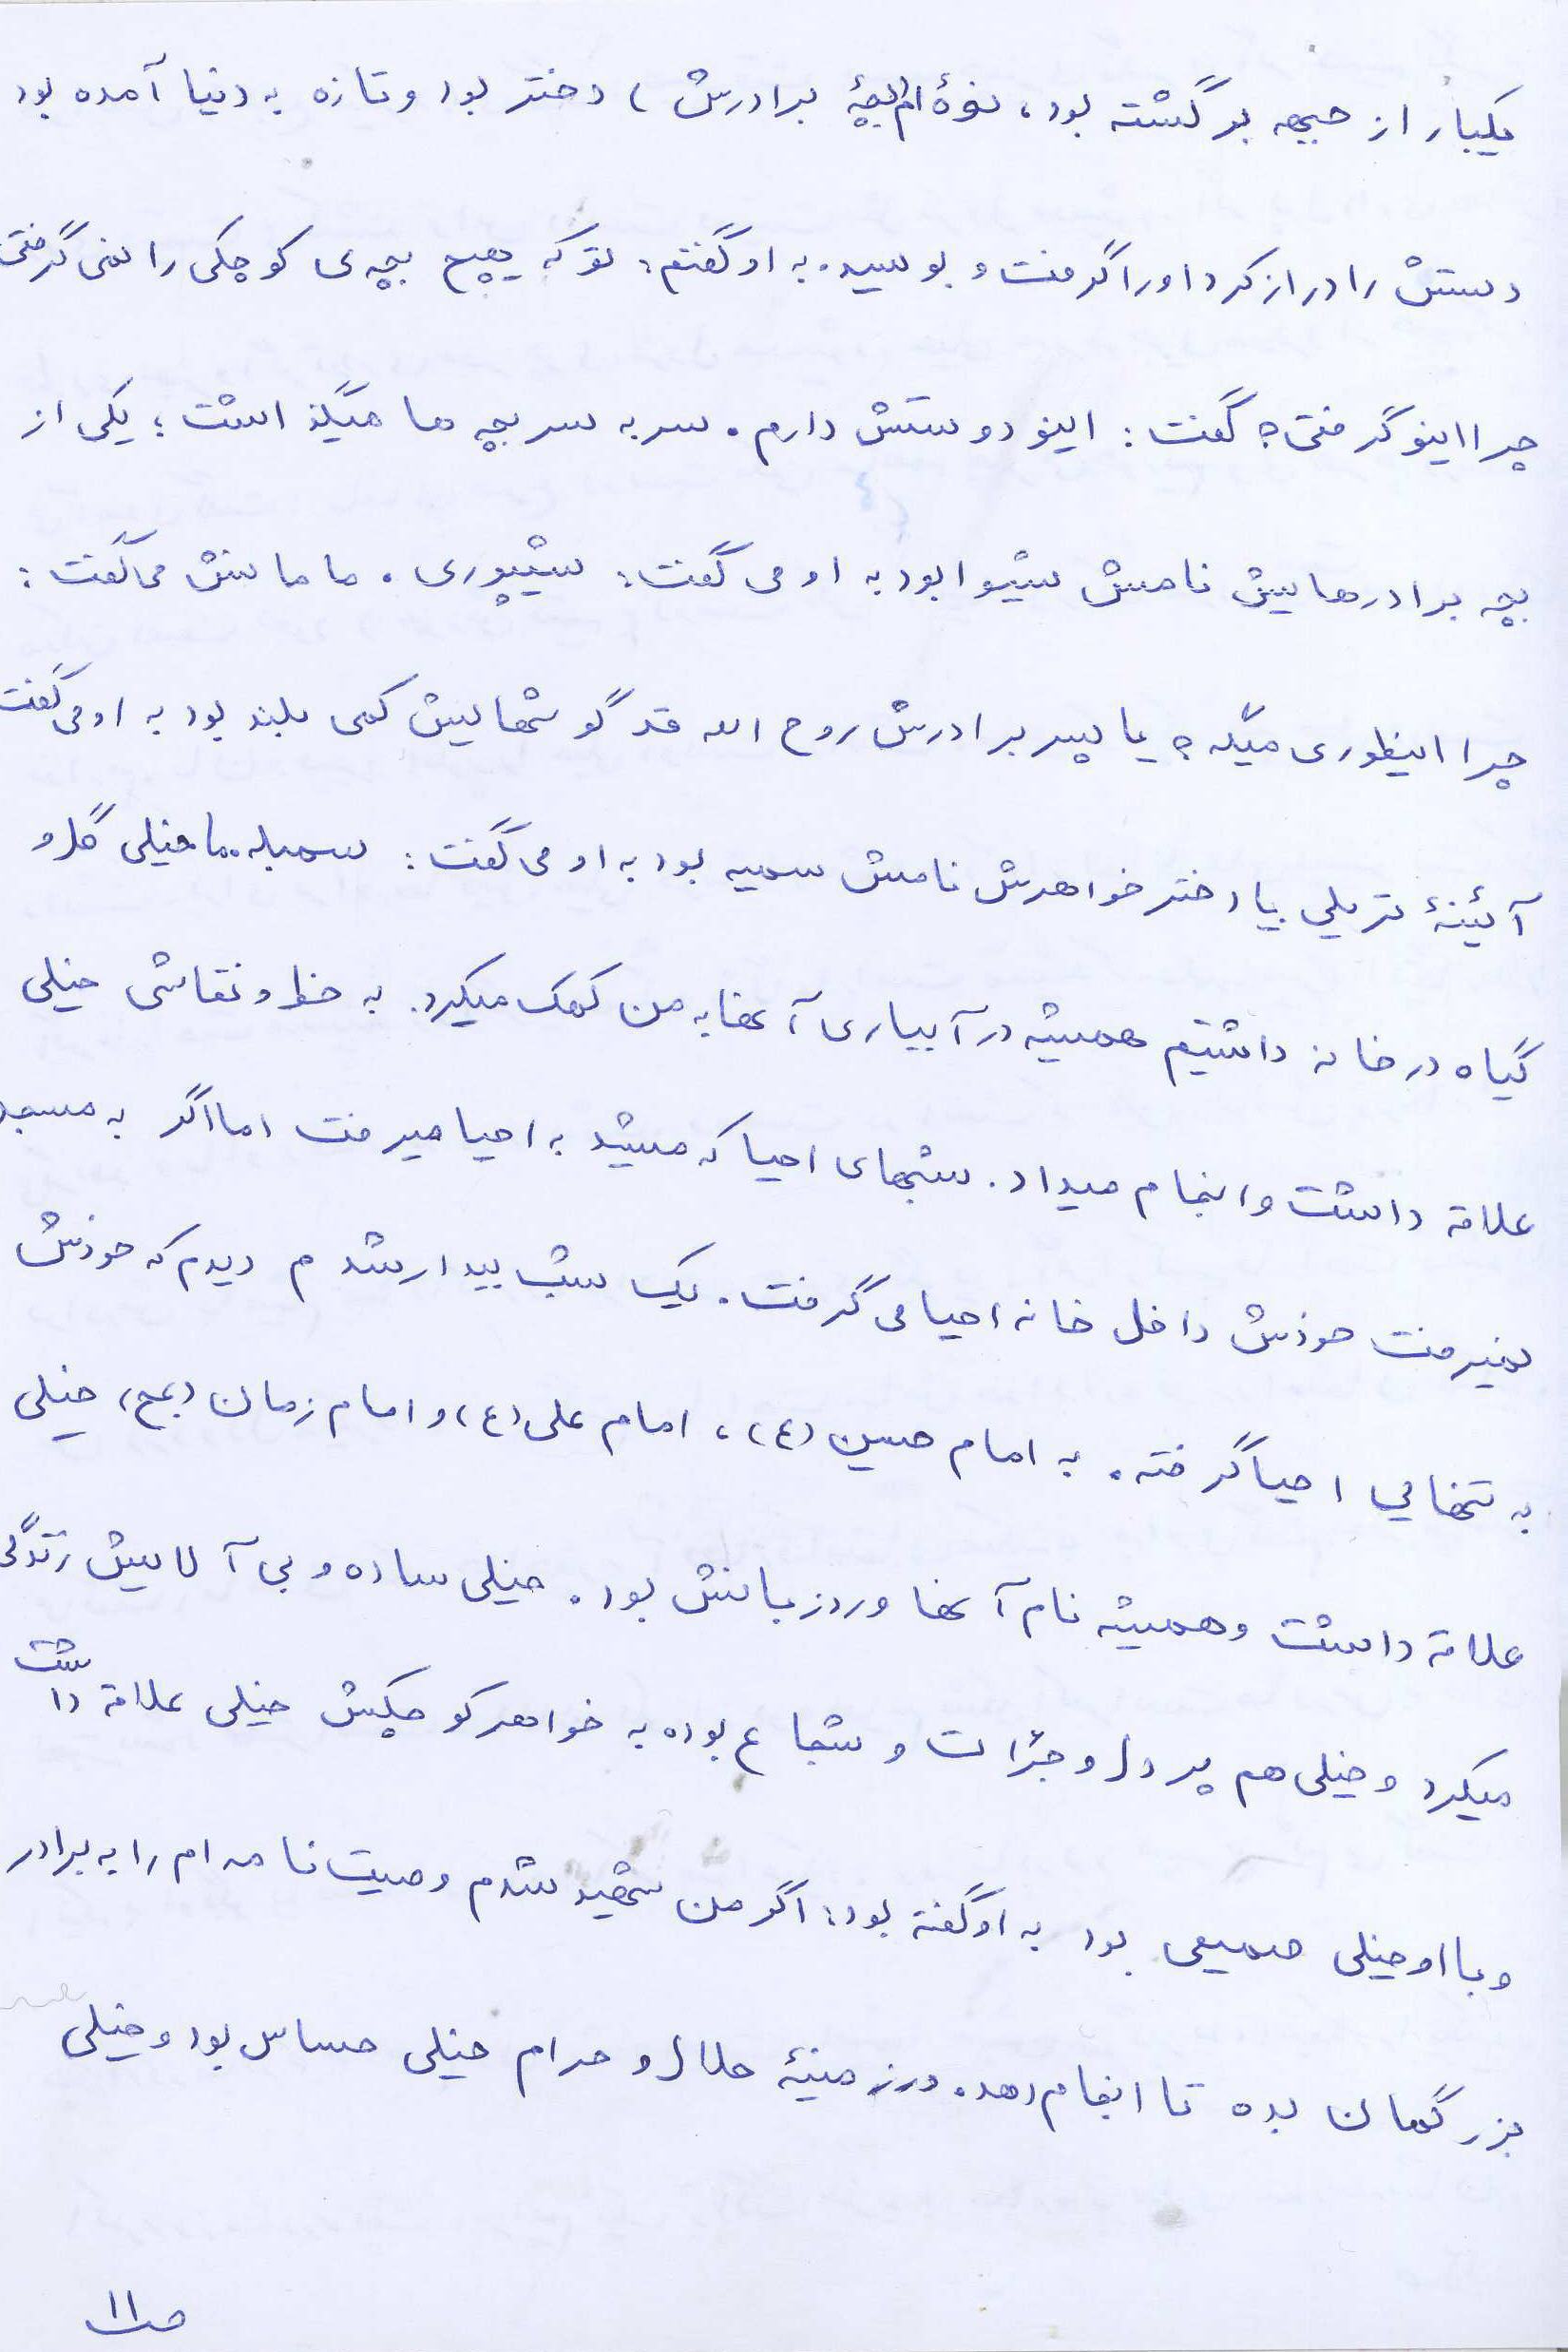 یکبار از جبهه برگشته بود، نوهٔ ام (بچهٔ برادرش) دختر بود و تازه به دنیا آمده بود
دستش را دراز کرد او را گرفت و بوسید. به او گفتم: تو که هیچ بچه‌ی کوچکی را نمی گرفتی
چرا اینو گرفتی؟ گفت: اینو دوستش دارم. سر به سر بچه ها میگذاشت؛ یکی از
بچه برادرهایش نامش شیوا بود به او می گفت: شیپوری. مامانش می گفت:
چرا اینطوری میگه؟ یا پسر برادرش روح الله قد گوشهایش کمی بلند بود به او می گفت
آئینهٔ تریلی یا دختر خواهرش نامش سمیه بود به او می گفت: سمبله. ما خیلی گل و
گیاه در خانه داشتیم همیشه در آبیاری آنها به من کمک میکرد. به خط و نقاشی خیلی
علاقه داشت و انجام میداد. شبهای احیا که میشد به احیا میرفت اما اگر به مسجد
نمیرفت خودش داخل خانه احیا می گرفت. یک شب بیدار شدم دیدم که خودش
به تنهایی احیا گرفته. به امام حسین (ع)، امام علی (ع) و امام زمان (عج) خیلی
علاقه داشت و همیشه نام آنها ورد زبانش بود. خیلی ساده و بی آلایش زندگی
میکرد و خیلی هم پر دل و جرأت و شجاع بوده به خواهر کوچکش خیلی علاقه داشت
و با او خیلی صمیمی بود به او گفته بود: اگر من شهید شدم وصیت نامه ام را به برادر
بزرگمان بده تا انجام دهد. در زمینهٔ حلال و حرام خیلی حساس بود و خیلی
ص۱۱